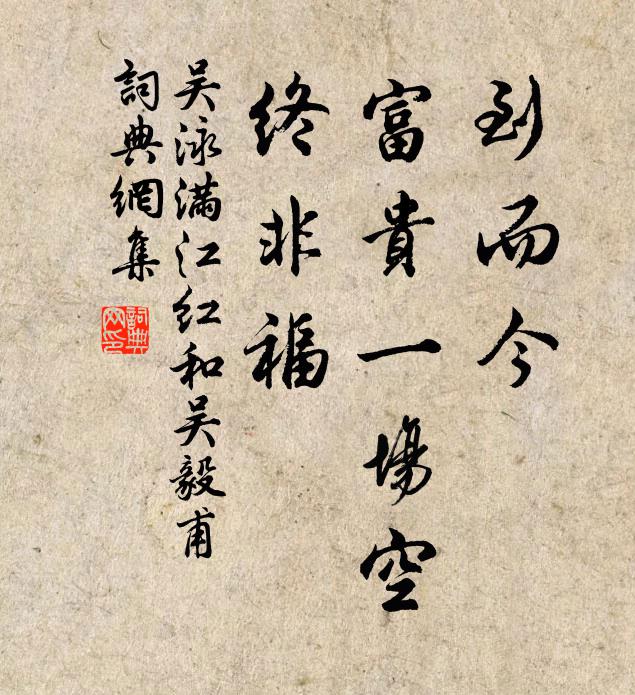 到而今
富貴一場空
終非福
吴泳滿江红和吴毅甫
詞典網集
詞典网印